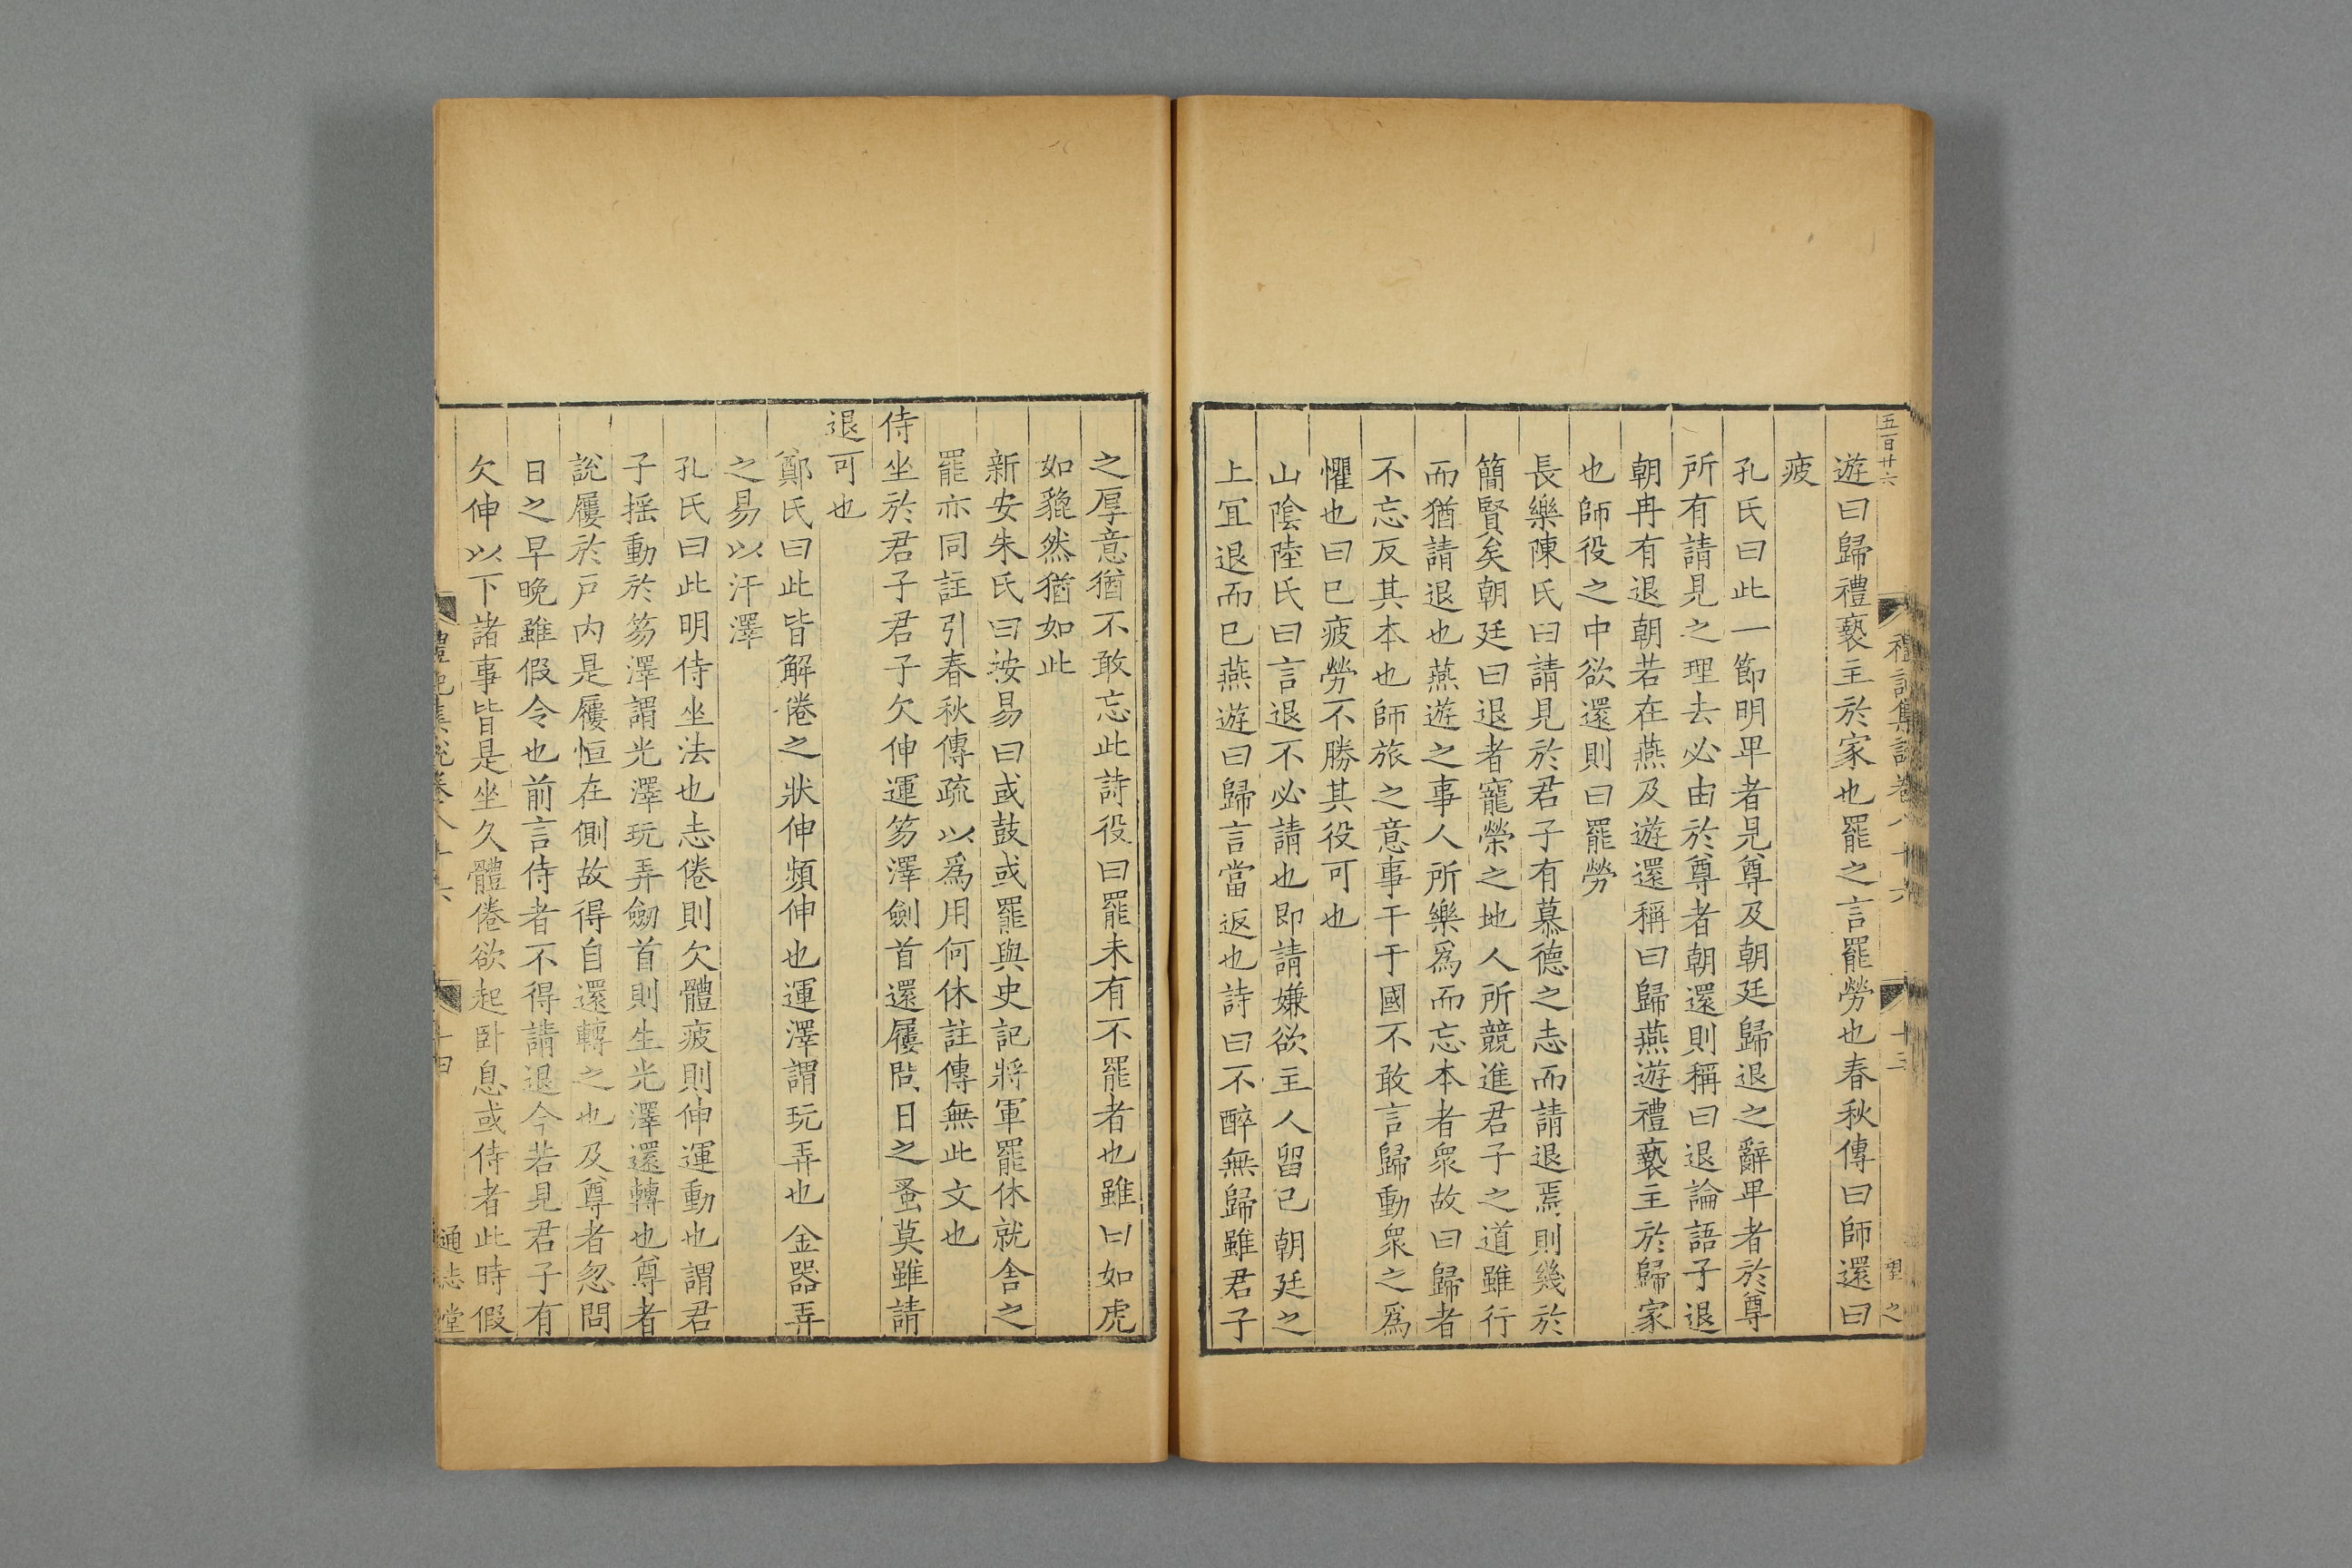 五百廿六
禮記集說卷八十六
十三
望之
遊曰歸禮褻主於家也罷之言罷勞也春秋傳曰師還曰
疲
孔氏曰此一節明畢者見尊及朝廷歸退之辭畢者於尊
所有請見之理去必由於尊者朝還則稱曰退論語子退
朝冉有退朝若在燕及遊還稱曰歸燕遊禮褻主於歸家
也師役之中欲還則曰罷勞
長樂陳氏曰請見於君子有慕德之志而請退焉則幾於
簡賢矣朝廷曰退者寵榮之地人所競進君子之道雖行
而猶請退也燕遊之事人所樂爲而忘本者衆故曰歸者
不忘反其本也師旅之意事干于國不敢言歸動衆之爲
懼也曰已疲勞不勝其役可也
山陰陸氏曰言退不必請也即請嫌欲主人留己朝廷之
上宜退而已燕遊曰歸言當返也詩曰不醉無歸雖君子
之厚意猶不敢忘此詩役曰罷未有不罷者也雖曰如虎
如貔然猶如此
新安朱氏曰按易曰或鼓或罷與史記將軍罷休就舍之
罷亦同註引春秋傳疏以爲用何休註傳無此文也
侍坐於君子君子欠伸運笏澤劍首還屨問日之蚤莫雖請
退可也
鄭氏曰此皆解倦之狀伸頻伸也運澤謂玩弄也金器弄
之易以汗澤
孔氏曰此明侍坐法也志倦則欠體疲則伸運動也謂君
子搖動於笏澤謂光澤玩弄劒首則生光澤還轉也尊者
說屨於戶內是屨恒在側故得自還轉之也及尊者忽問
日之早晚雖假令也前言侍者不得請退今若見君子有
欠伸以下諸事皆是坐久體倦欲起卧息或侍者此時假
禮記集說卷八十六
十四
通志堂